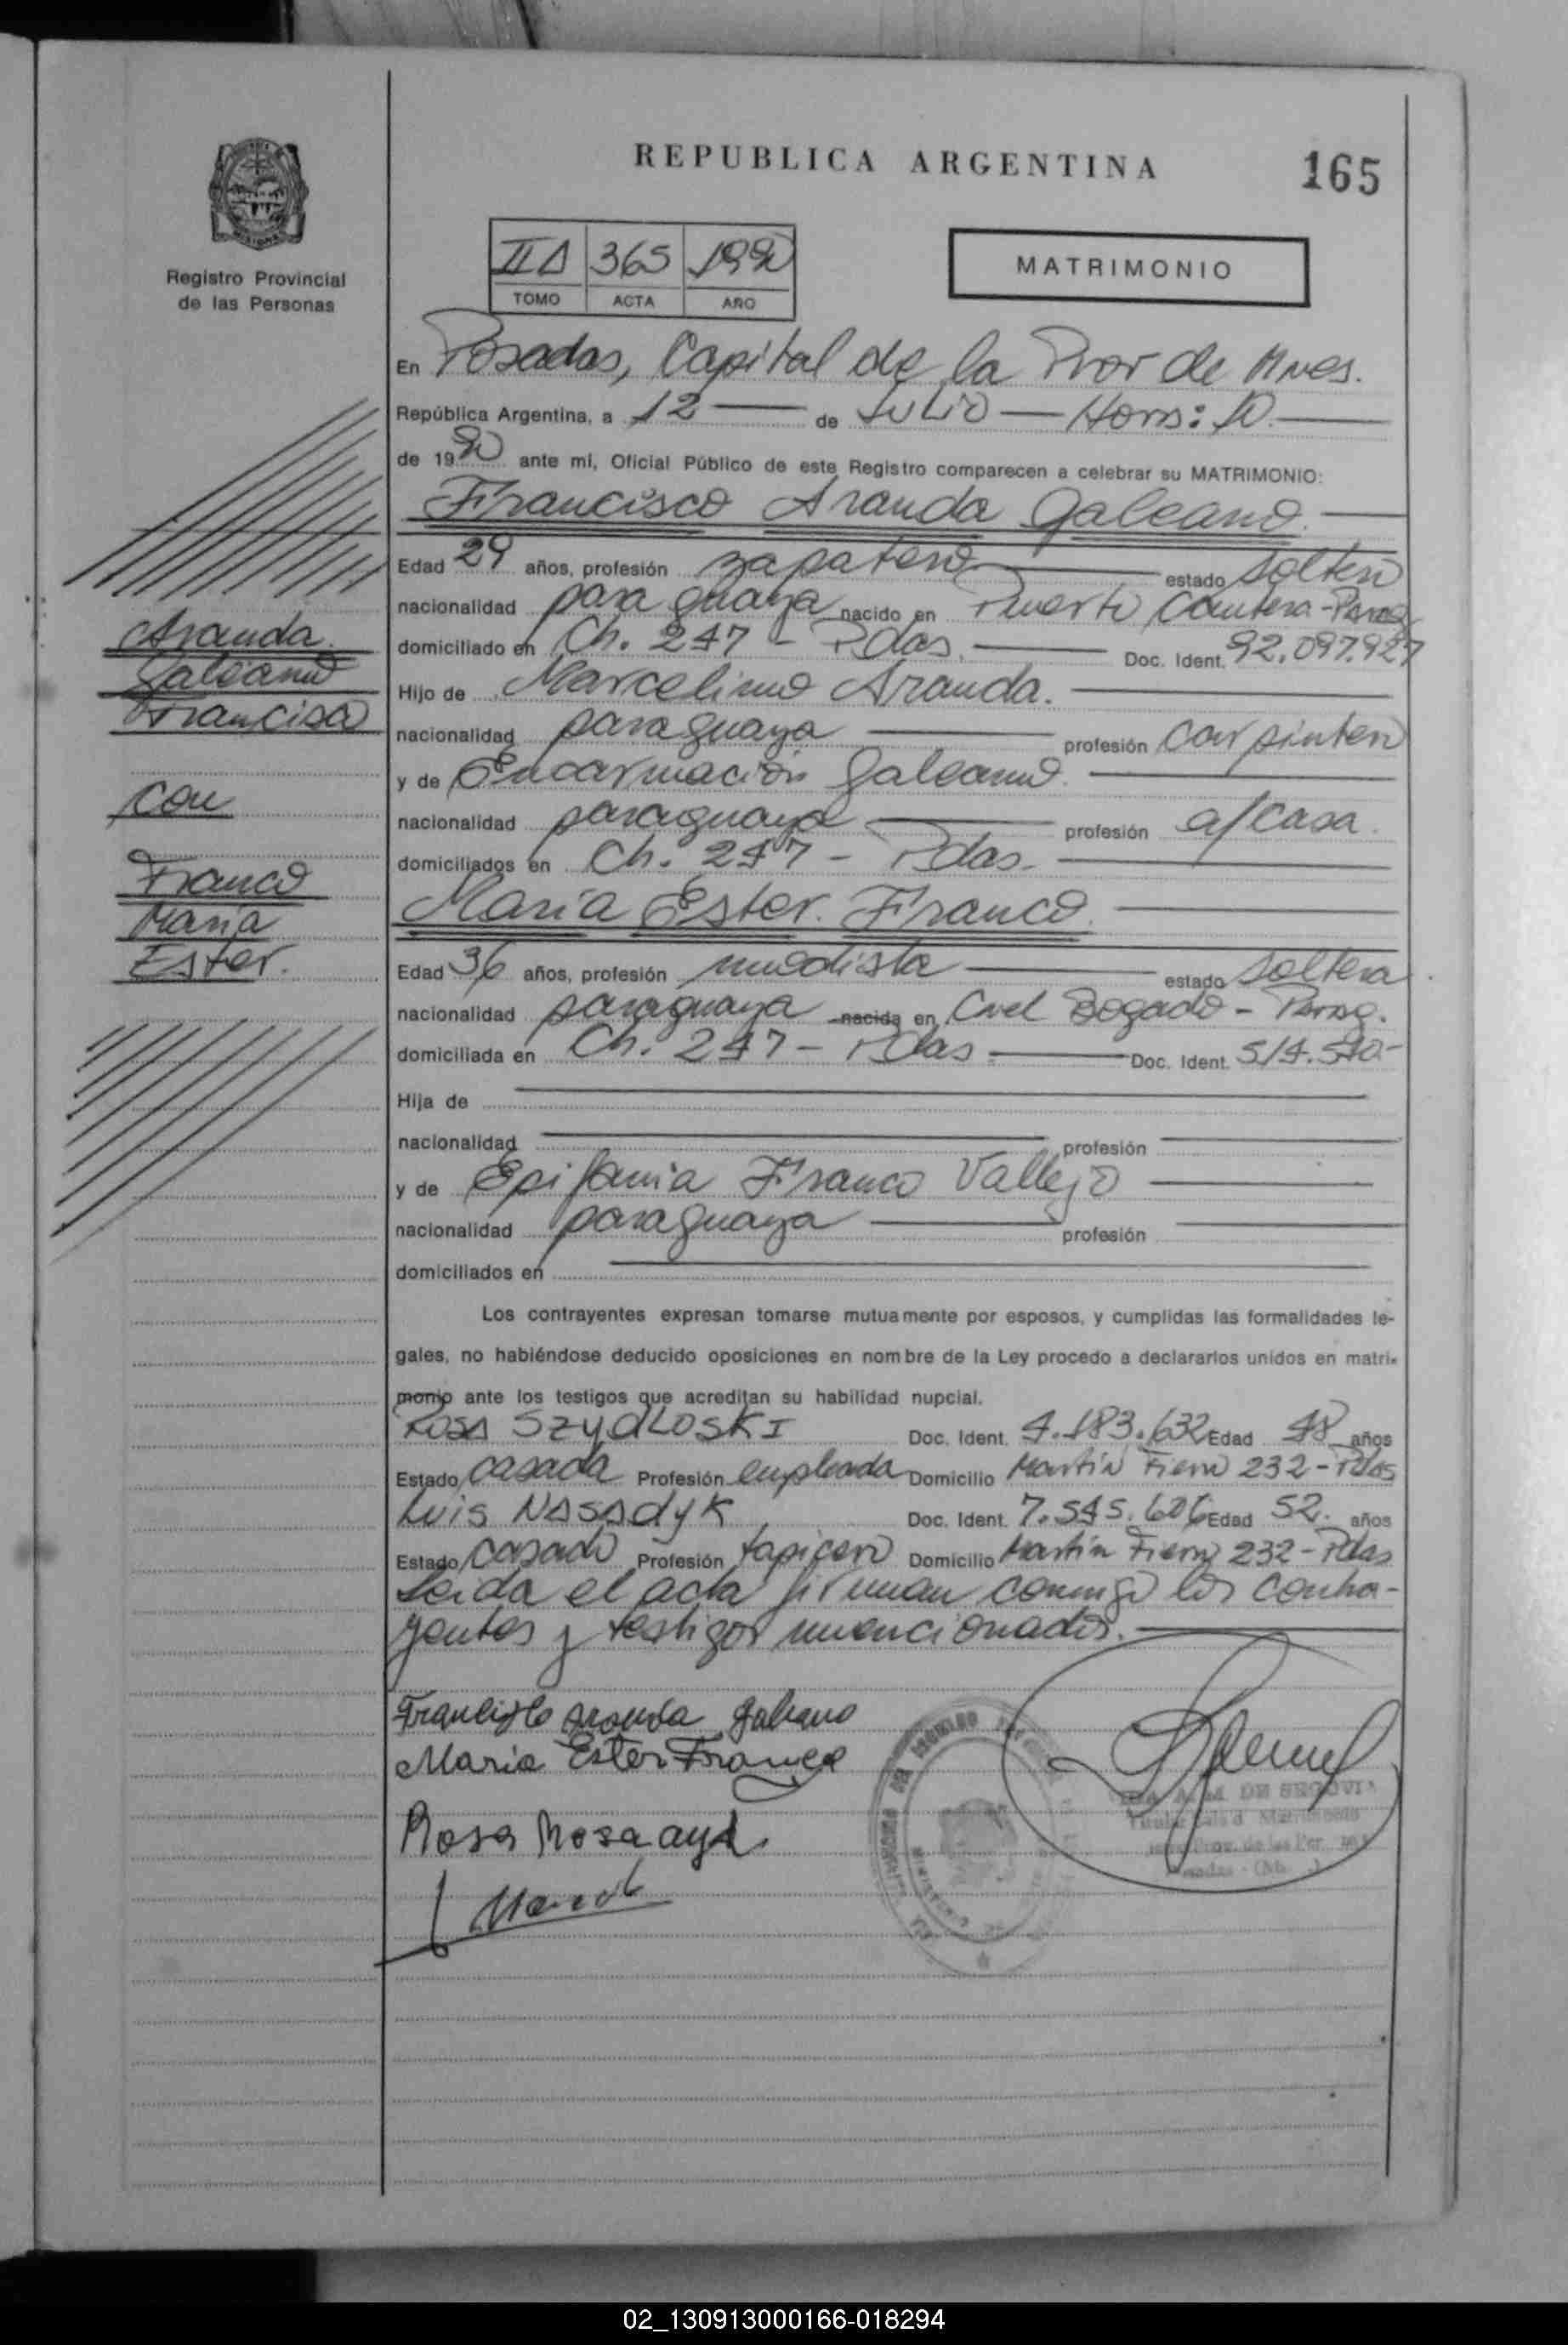 REPUBLICA ARGENTINA
165
Registro Provincial
de las Personas
IIA 365 1990
TOMO ACTA AÑO
MATRIMONIO
En Posadas, Capital de la Prov de Mnes.
República Argentina, a 12 de Julio Horas: 10.
de 1990 ante mí, Oficial Público de este Registro comparecen a celebrar su MATRIMONIO:
Francisco Aranda Galeano.
Edad 29 años, profesión zapatero estado soltero
nacionalidad paraguaya nacido en Puerto Cantera - Parag
domiciliado en Ch. 247 - Pdas. Doc. Ident. 92.097.927
Hijo de Marcelino Aranda.
nacionalidad paraguaya profesión carpintero
y de Encarnación Galeano.
nacionalidad paraguaya profesión a/casa.
domiciliados en Ch. 247 - Pdas.
Aranda
Galeano
Francisco
con
Franco
María
Ester.
María Ester. Franco.
Edad 36 años, profesión modista estado soltera
nacionalidad paraguaya nacida en Cnel Bogado - Parag.
domiciliada en Ch. 247 - Pdas. Doc. Ident. 514.540.-
Hija de
nacionalidad profesión
y de Epifania Franco Vallejo
nacionalidad paraguaya profesión
domiciliados en
Los contrayentes expresan tomarse mutuamente por esposos, y cumplidas las formalidades le-
gales, no habiéndose deducido oposiciones en nombre de la Ley procedo a declararlos unidos en matri-
monio ante los testigos que acreditan su habilidad nupcial.
Rosa SZydLOSKI Doc. Ident. 4.183.632 Edad 48 años
Estado casada Profesión empleada Domicilio Martín Fierro 232 - Pdas
Luis NASADyK Doc. Ident. 7.545.606 Edad 52. años
Estado casado Profesión tapicero Domicilio Martín Fierro 232 - Pdas
Leida el acta firman conmigo los contra-
yentes y testigos mencionados.
Francisco Aranda Galeano
Maria Ester Franco
Rosa
DE SEGOVIA
02_130913000166-018294